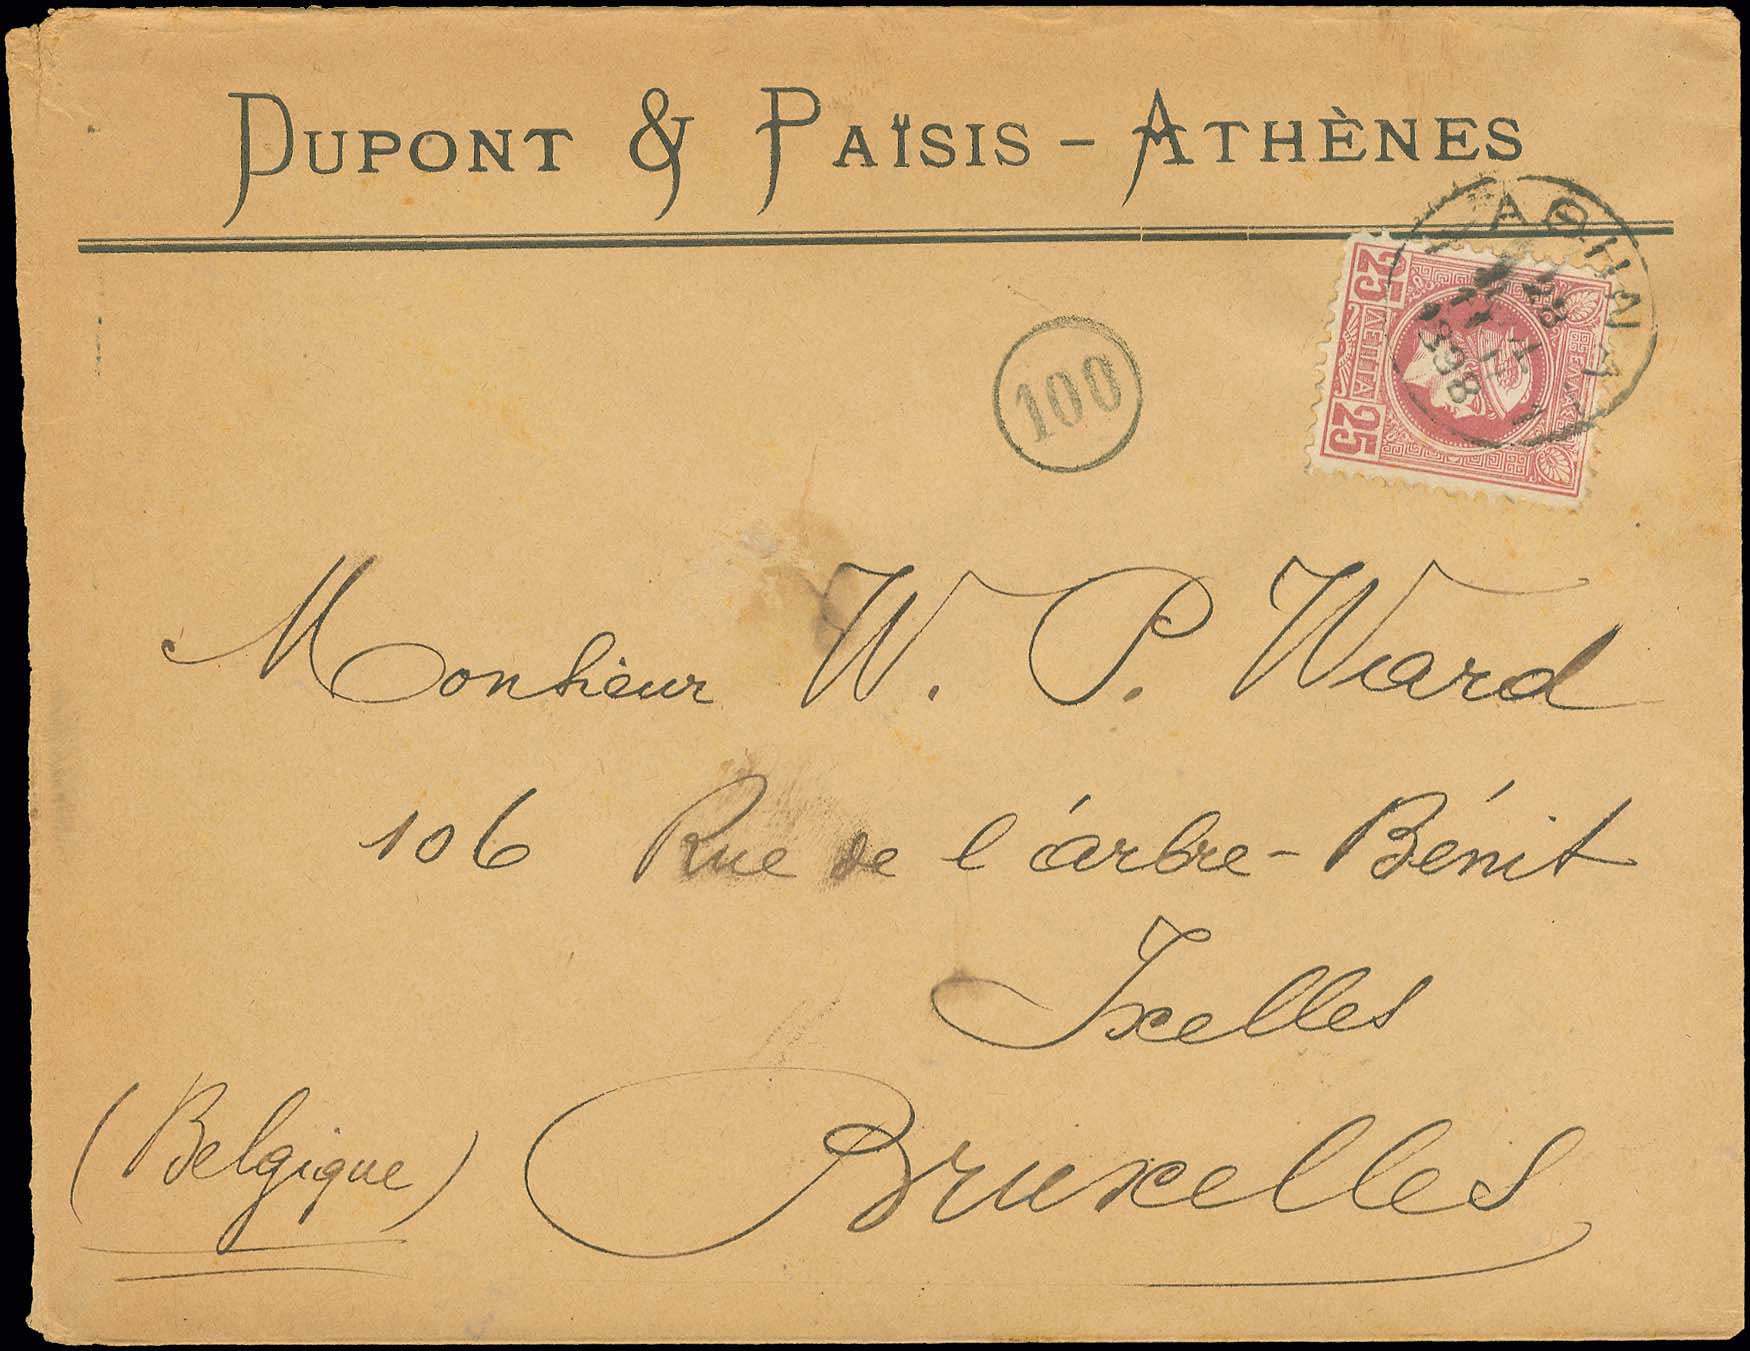 DUPONT & PAÏSIS - ATHÈNES
ΑΘΗΝΑΙ
23
1898
25 ΛΕΠΤΑ 25
ΕΛΛΑΣ
100
Monsieur W. P. Ward
106 Rue de l'arbre-Bénit
Ixelles
(Belgique) Bruxelles